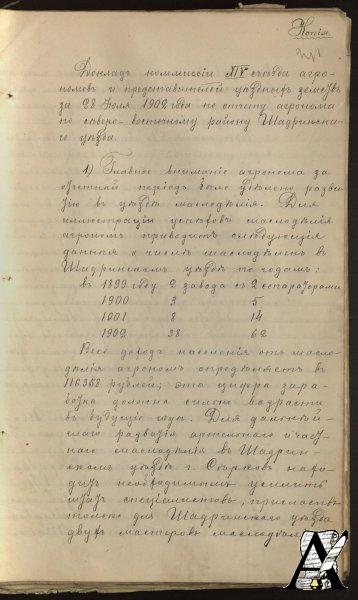 Копія.
Докладъ коммисіи XIV съѣзда агро-
номовъ и представителей уѣздныхъ земствъ
за 28 Іюля 1902 года по отчету агронома
по сѣверо-восточному району Шадринска-
го уѣзда.
1) Главное вниманіе агронома за
отчетный періодъ было удѣлено разви-
тію въ уѣздѣ маслодѣлія. Для
иллюстраціи успѣховъ маслодѣлія
агрономъ приводитъ слѣдующія
данныя о числѣ маслодѣленъ въ
Шадринскомъ уѣздѣ по годамъ:
въ 1899 году 2 завода съ 2 сепараторами
1900 3 5
1901 8 14
1902 38 62
Весь доходъ населенія отъ масло-
дѣлія агрономъ опредѣляетъ въ
116368 рублей; эта цифра зара-
ботка должна сильно возрасти
въ будущіе годы. Для дальнѣй-
шаго развитія артельнаго и част-
наго маслодѣлія въ Шадрин-
скомъ уѣздѣ г. нахо-
дитъ необходимымъ усилить
штатъ спеціалистовъ, пригласивъ
только для Шадринскаго уѣзда
двухъ мастеровъ